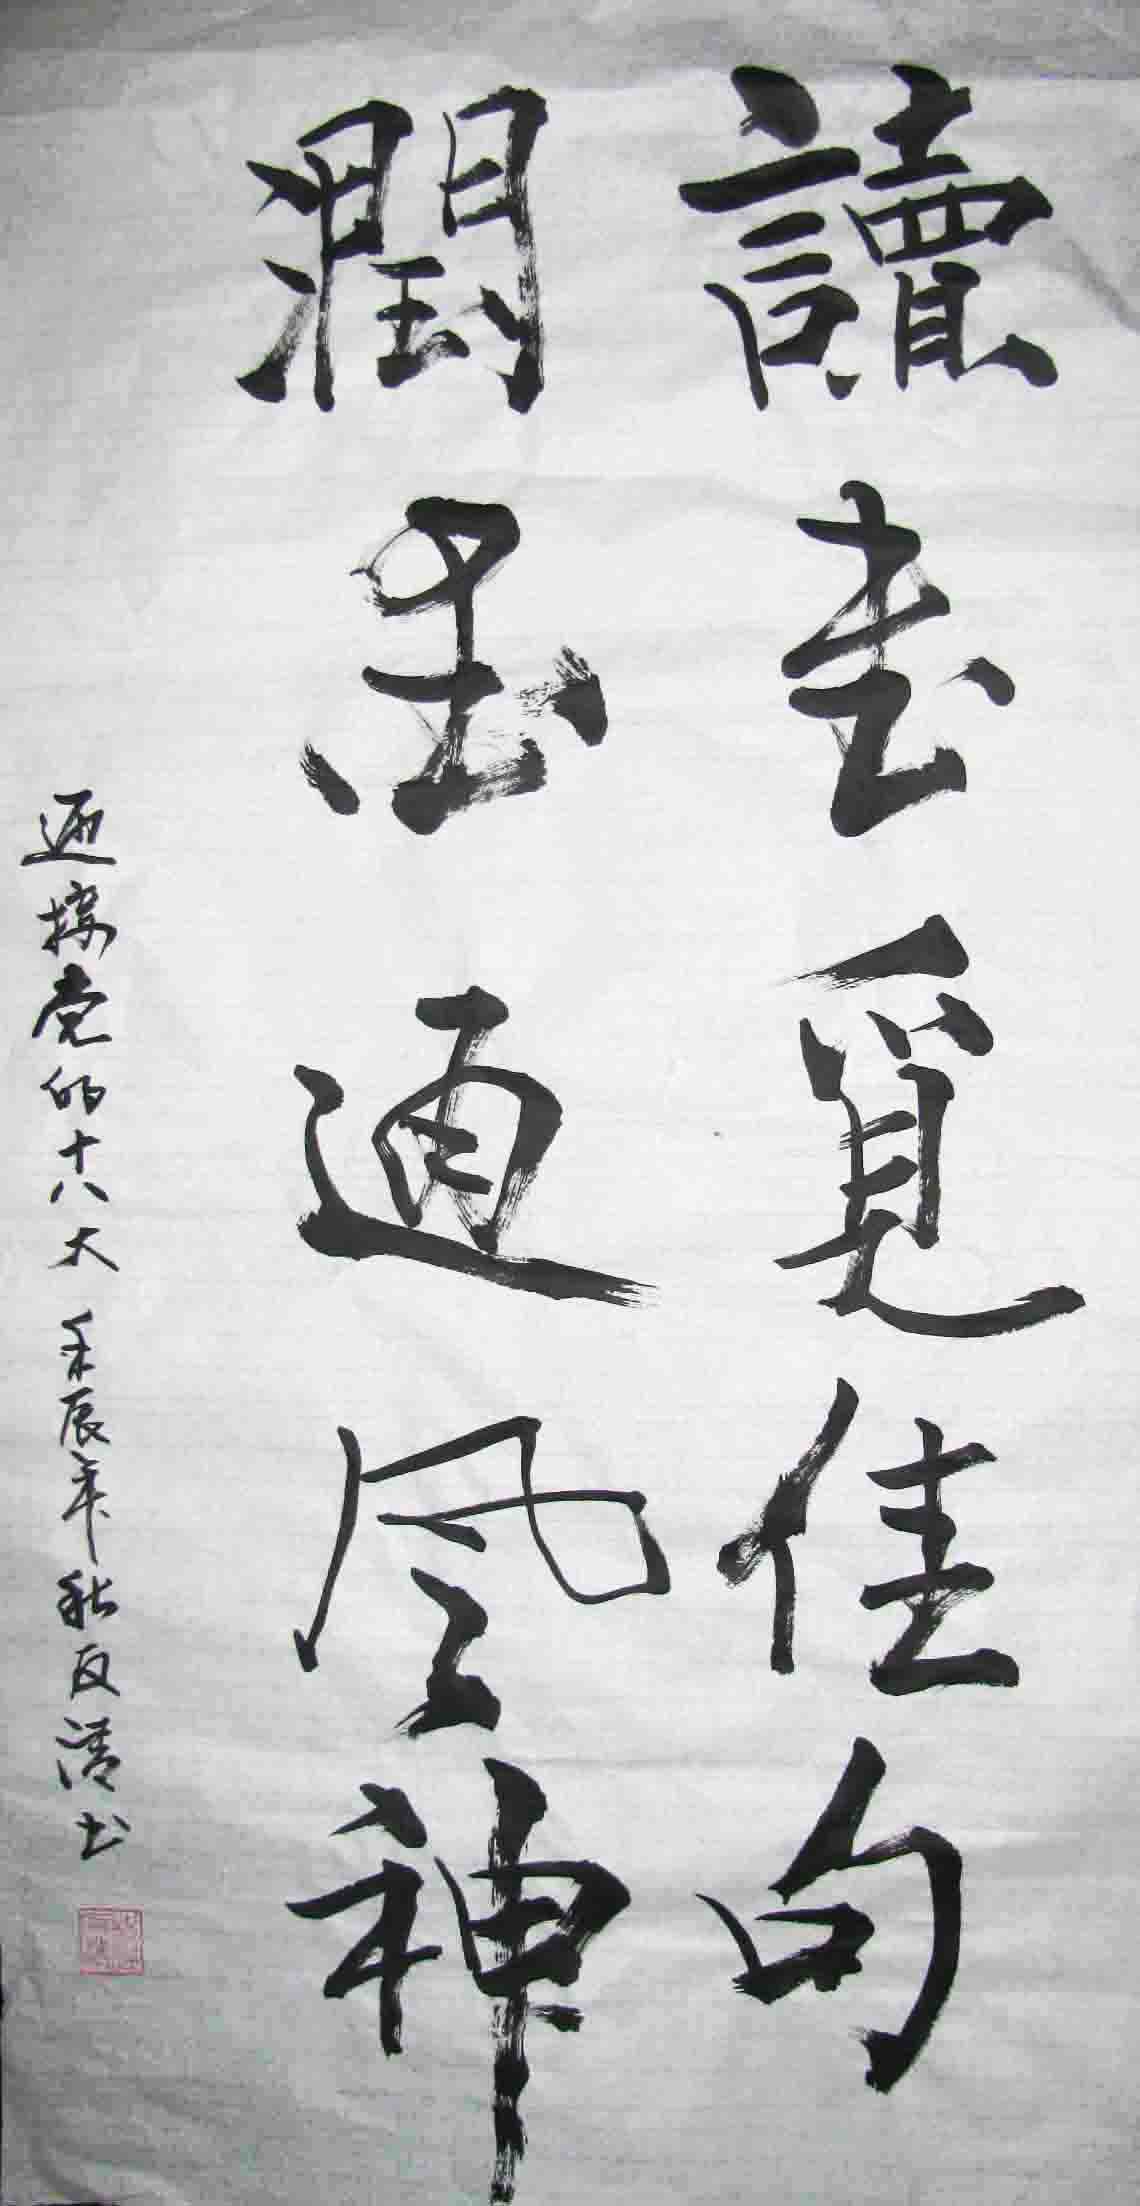 讀書覓佳句
潤墨通风神
迎接党的十八大 壬辰年秋友清书